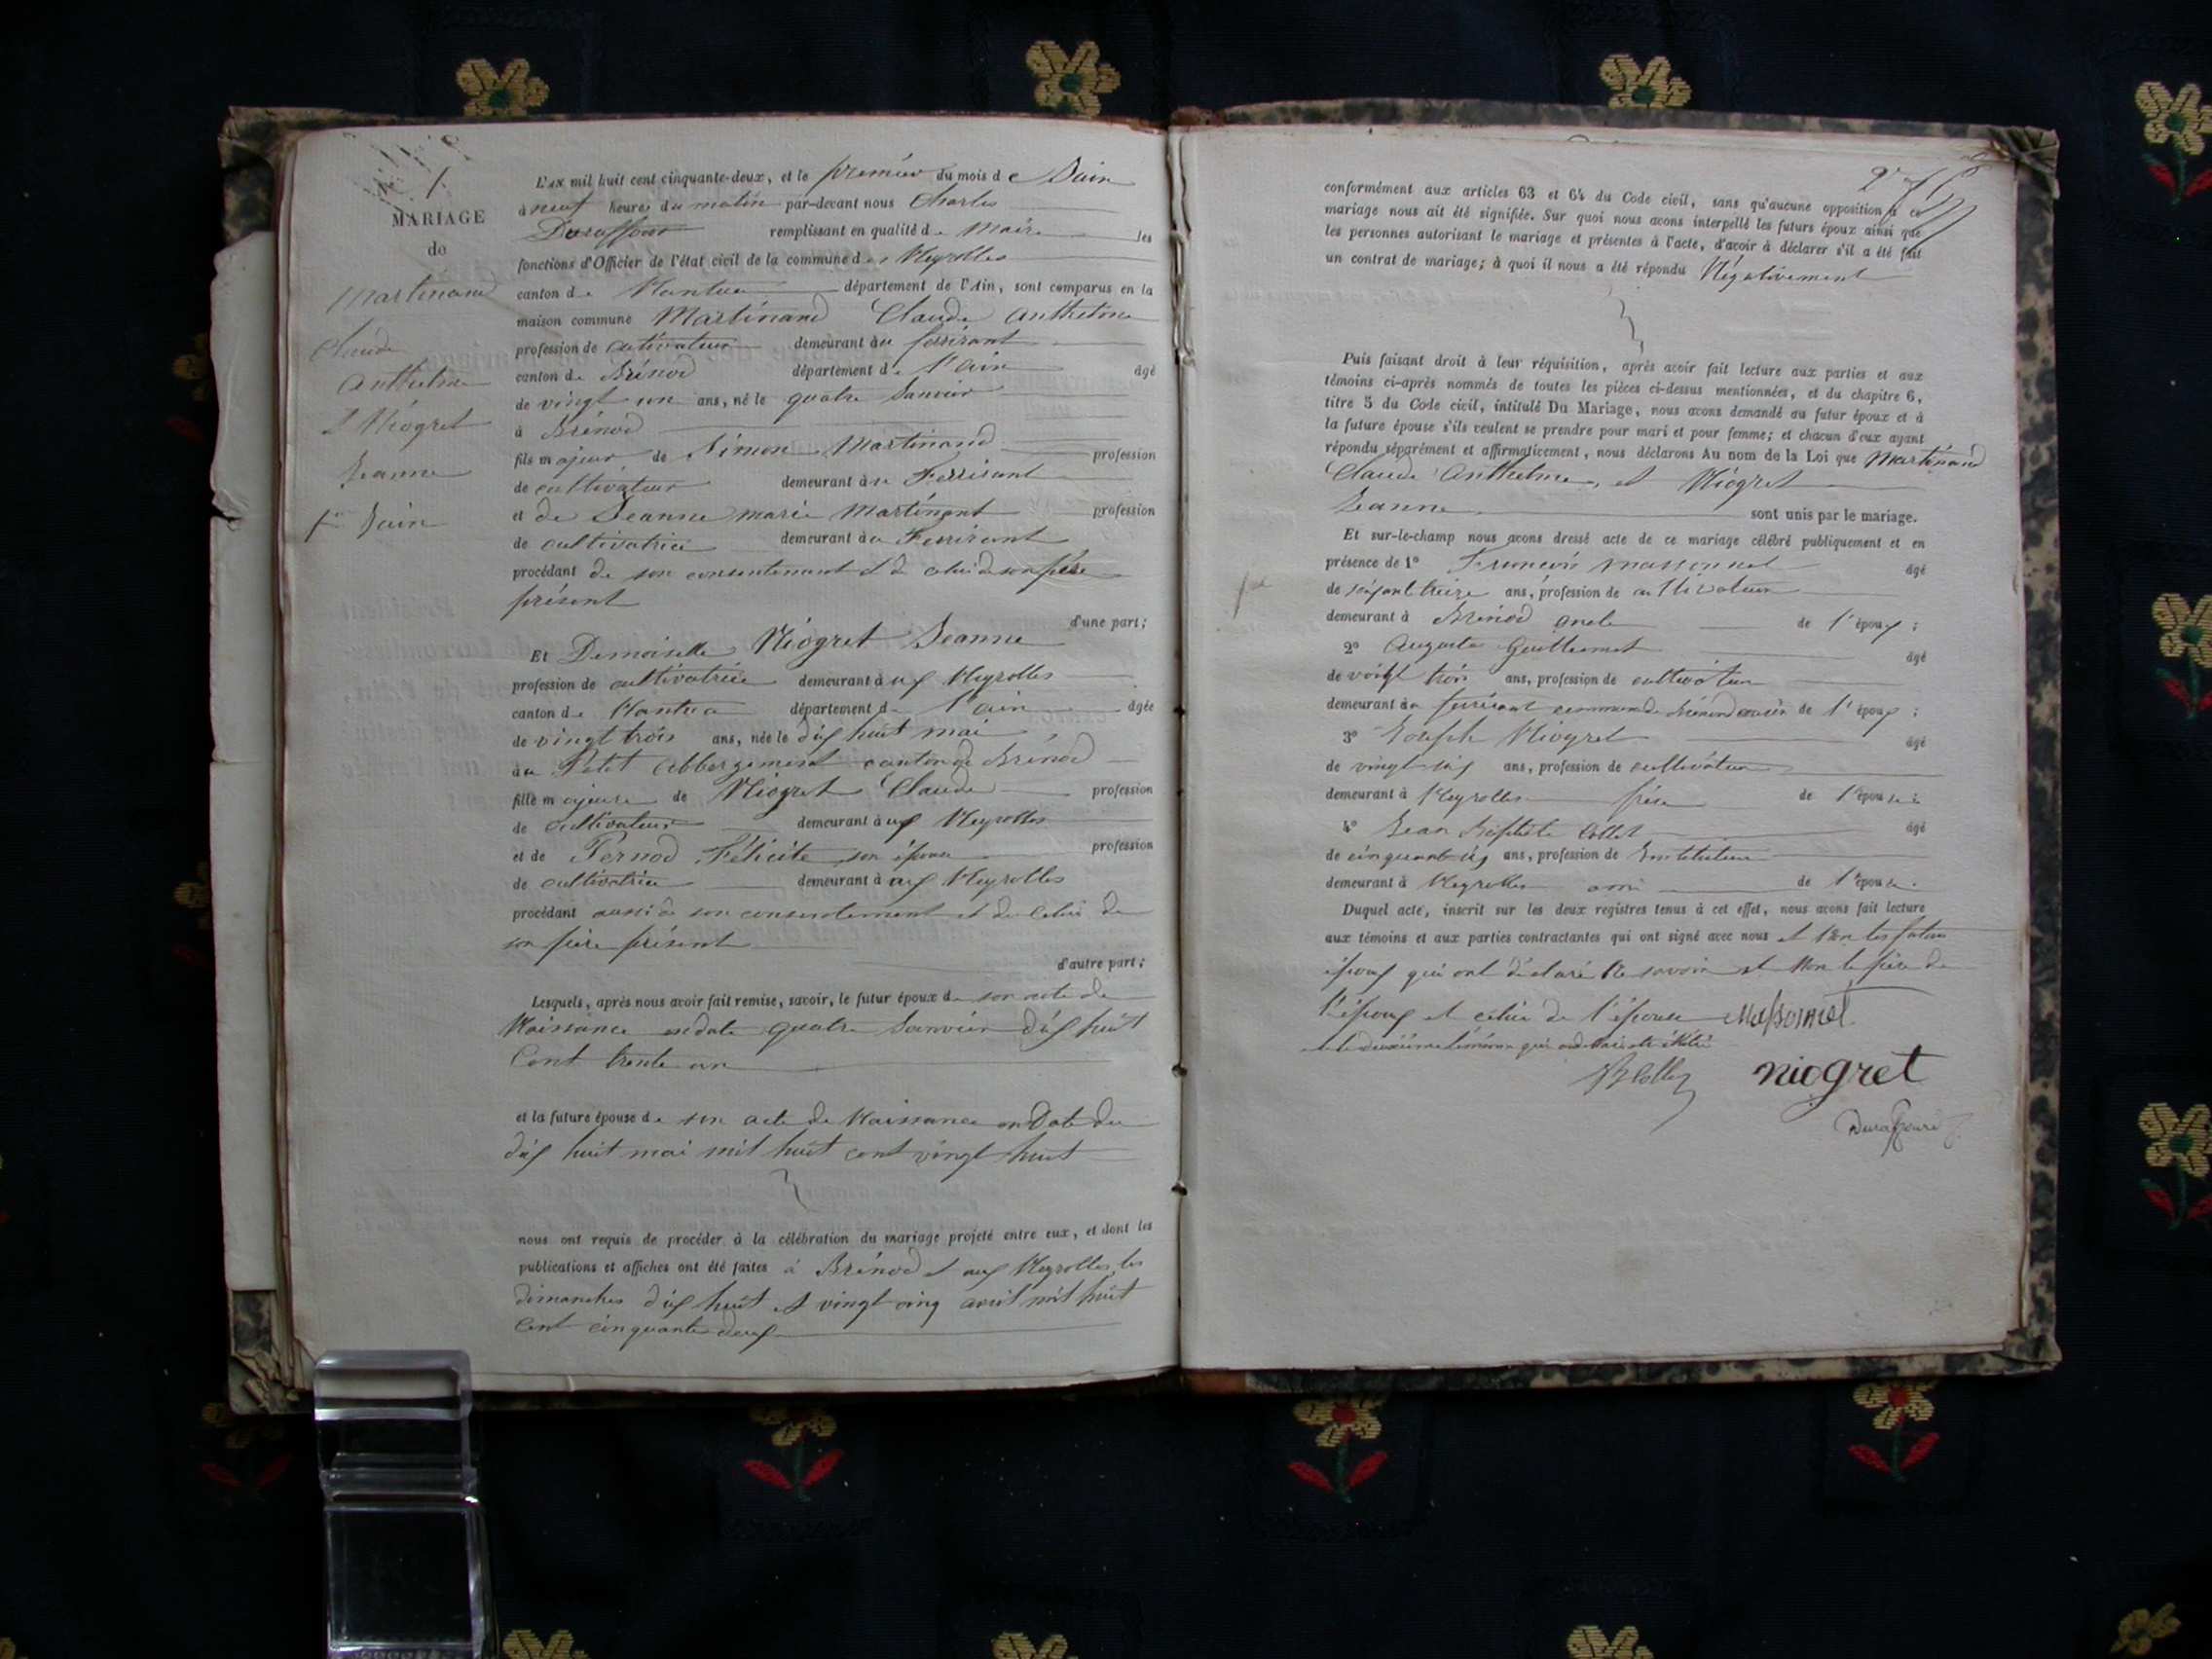 1
MARIAGE
de
Martinand
Claude
Anthelme
& Niogret
Jeanne
1er Juin
L'AN mil huit cent cinquante-deux, et le premier du mois de Juin
à neuf heures du matin par-devant nous Charles
Duraffour remplissant en qualité de Maire les
fonctions d'Officier de l'état civil de la commune des Neyrolles
canton de Nantua département de l'Ain, sont comparus en la
maison commune Martinand Claude Anthelme
profession de cultivateur demeurant au ferrirant
canton de Brénod département de l'ain âgé
de vingt un ans, né le quatre Janvier
à Brénod
fils majeur de Simon Martinand profession
de cultivateur demeurant au Ferrirant
et de Jeanne marie Martinant profession
de cultivatrice demeurant au Ferrirant
procédant de son consentement et de celui de son père
présent
d'une part;
Et Demoiselle Niogret Jeanne
profession de cultivatrice demeurant à ux Neyrolles
canton de Nantua département de l'ain âgée
de vingt trois ans, née le dix huit mai
au Petit Abbergement canton de Brénod
fille majeure de Niogret Claude profession
de cultivateur demeurant à ux Neyrolles
et de Pernod Félicité son épouse profession
de cultivatrice demeurant à aux Neyrolles
procédant aussi de son consentement et de celui de
son père présent
d'autre part;
Lesquels, après nous avoir fait remise, savoir, le futur époux de son acte de
Naissance en date quatre Janvier dix huit
Cent trente un
et la future épouse de son acte de Naissance en Date du
dix huit mai mil huit cent vingt huit
nous ont requis de procéder à la célébration du mariage projeté entre eux, et dont les
publications et affiches ont été faites à Brénod et aux Neyrolles les
dimanches dix huit et vingt cinq avril mil huit
cent cinquante deux
conformément aux articles 63 et 64 du Code civil, sans qu'aucune opposition à ce
mariage nous ait été signifiée. Sur quoi nous avons interpellé les futurs époux ainsi que
les personnes autorisant le mariage et présentes à l'acte, d'avoir à déclarer s'il a été fait
un contrat de mariage; à quoi il nous a été répondu Négativement
Puis faisant droit à leur réquisition, après avoir fait lecture aux parties et aux
témoins ci-après nommés de toutes les pièces ci-dessus mentionnées, et du chapitre 6,
titre 5 du Code civil, intitulé Du Mariage, nous avons demandé au futur époux et à
la future épouse s'ils veulent se prendre pour mari et pour femme; et chacun d'eux ayant
répondu séparément et affirmativement, nous déclarons Au nom de la Loi que Martinand
Claude Anthelme, et Niogret
Jeanne sont unis par le mariage.
Et sur-le-champ nous avons dressé acte de ce mariage célébré publiquement et en
présence de 1° François Massonnet âgé
de soixante treize ans, profession de cultivateur
demeurant à Brénod oncle de l'époux;
2° Auguste Guillermet âgé
de vingt trois ans, profession de cultivateur
demeurant au ferrirant commune de Brénod cousin de l'époux;
3° Joseph Niogret âgé
de vingt six ans, profession de cultivateur
demeurant à Neyrolles frère de l'épouse;
4° Jean Baptiste Collet âgé
de cinquante six ans, profession de Instituteur
demeurant à Neyrolles ami de l'épouse.
Duquel acte, inscrit sur les deux registres tenus à cet effet, nous avons fait lecture
aux témoins et aux parties contractantes qui ont signé avec nous et Non les futurs
époux qui ont déclaré Ne savoir et Non le père de
l'époux et celui de l'épouse Massonnet
et le deuxième témoin
niogret
Duraffour